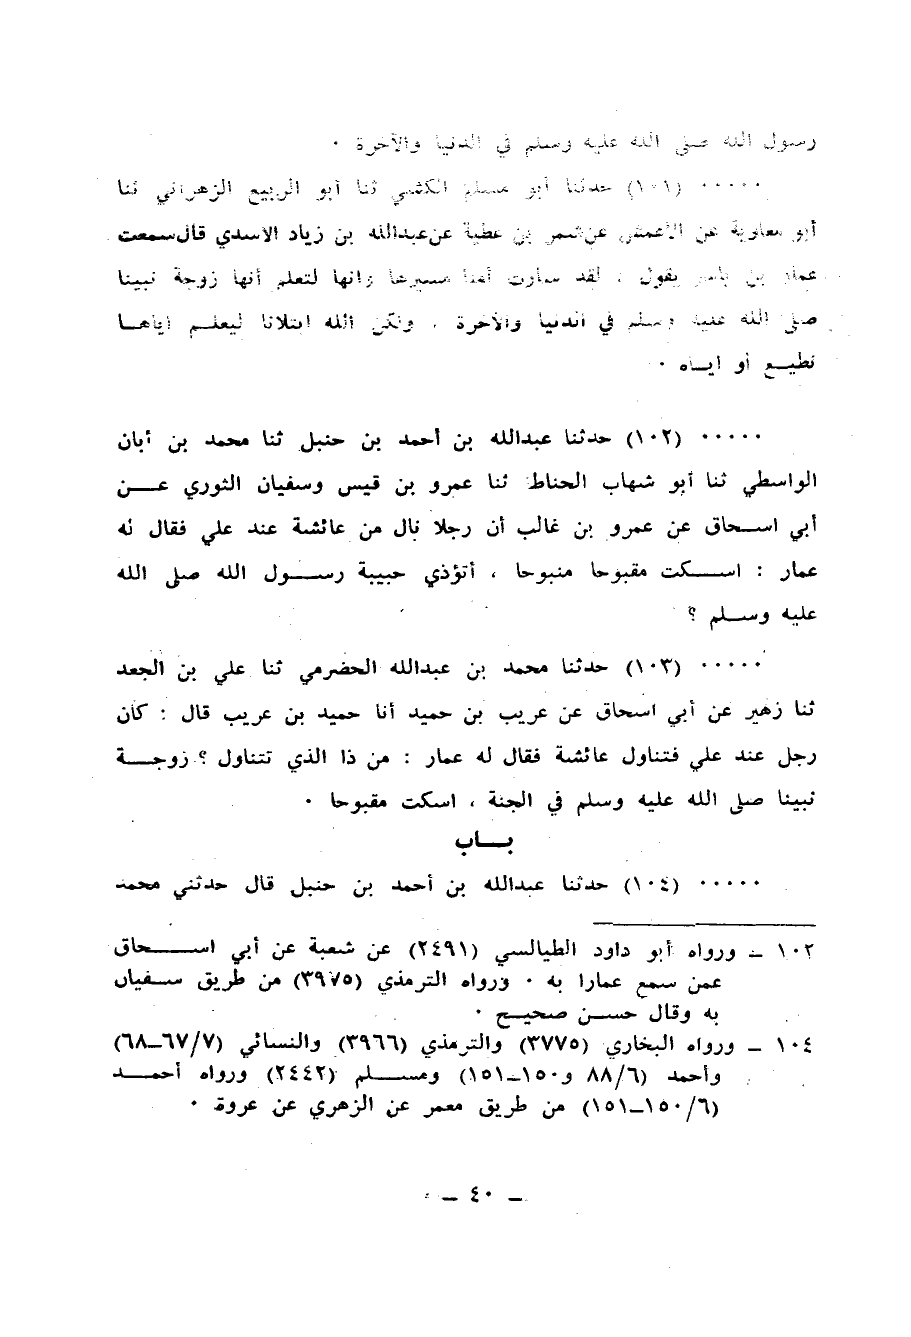 رسول الله صلى الله عليه وسلم في الدنيا والآخرة ٠
٠٠٠٠٠ (١٠١) حدثنا أبو مسلم الكشي ثنا أبو الربيع الزهراني ثنا
أبو معاوية عن الأعمش عن شمر بن عطية عن عبدالله بن زياد الاسدي قال سمعت
عمار بن ياسر يقول ، لقد سارت أمنا مسيرها وانها لتعلم أنها زوجة نبينا
صلى الله عليه وسلم في الدنيا والآخرة ، ولكن الله ابتلانا ليعلم اياها
نطيع أو اياه ٠
٠٠٠٠٠ (١٠٢) حدثنا عبدالله بن أحمد بن حنبل ثنا محمد بن أبان
الواسطي ثنا أبو شهاب الحناط ثنا عمرو بن قيس وسفيان الثوري عن
أبي اسحاق عن عمرو بن غالب أن رجلا نال من عائشة عند علي فقال له
عمار : اسكت مقبوحا منبوحا ، أتؤذي حبيبة رسول الله صلى الله
عليه وسلم ؟
٠٠٠٠٠ (١٠٣) حدثنا محمد بن عبدالله الحضرمي ثنا علي بن الجعد
ثنا زهير عن أبي اسحاق عن عريب بن حميد أنا حميد بن عريب قال : كان
رجل عند علي فتناول عائشة فقال له عمار : من ذا الذي تتناول ؟ زوجة
نبينا صلى الله عليه وسلم في الجنة ، اسكت مقبوحا ٠
باب
٠٠٠٠٠ (١٠٤) حدثنا عبدالله بن أحمد بن حنبل قال حدثني محمد
١٠٢ – ورواه أبو داود الطيالسي (٢٤٩١) عن شعبة عن أبي اسحاق
عمن سمع عمارا به ٠ ورواه الترمذي (٣٩٧٥) من طريق سفيان
به وقال حسن صحيح ٠
١٠٤ – ورواه البخاري (٣٧٧٥) والترمذي (٣٩٦٦) والنسائي (٦٧/٧–٦٨)
وأحمد (٨٨/٦ و١٥٠–١٥١) ومسلم (٢٤٤٢) ورواه أحمد
(١٥٠/٦–١٥١) من طريق معمر عن الزهري عن عروة ٠
– ٤٠ –